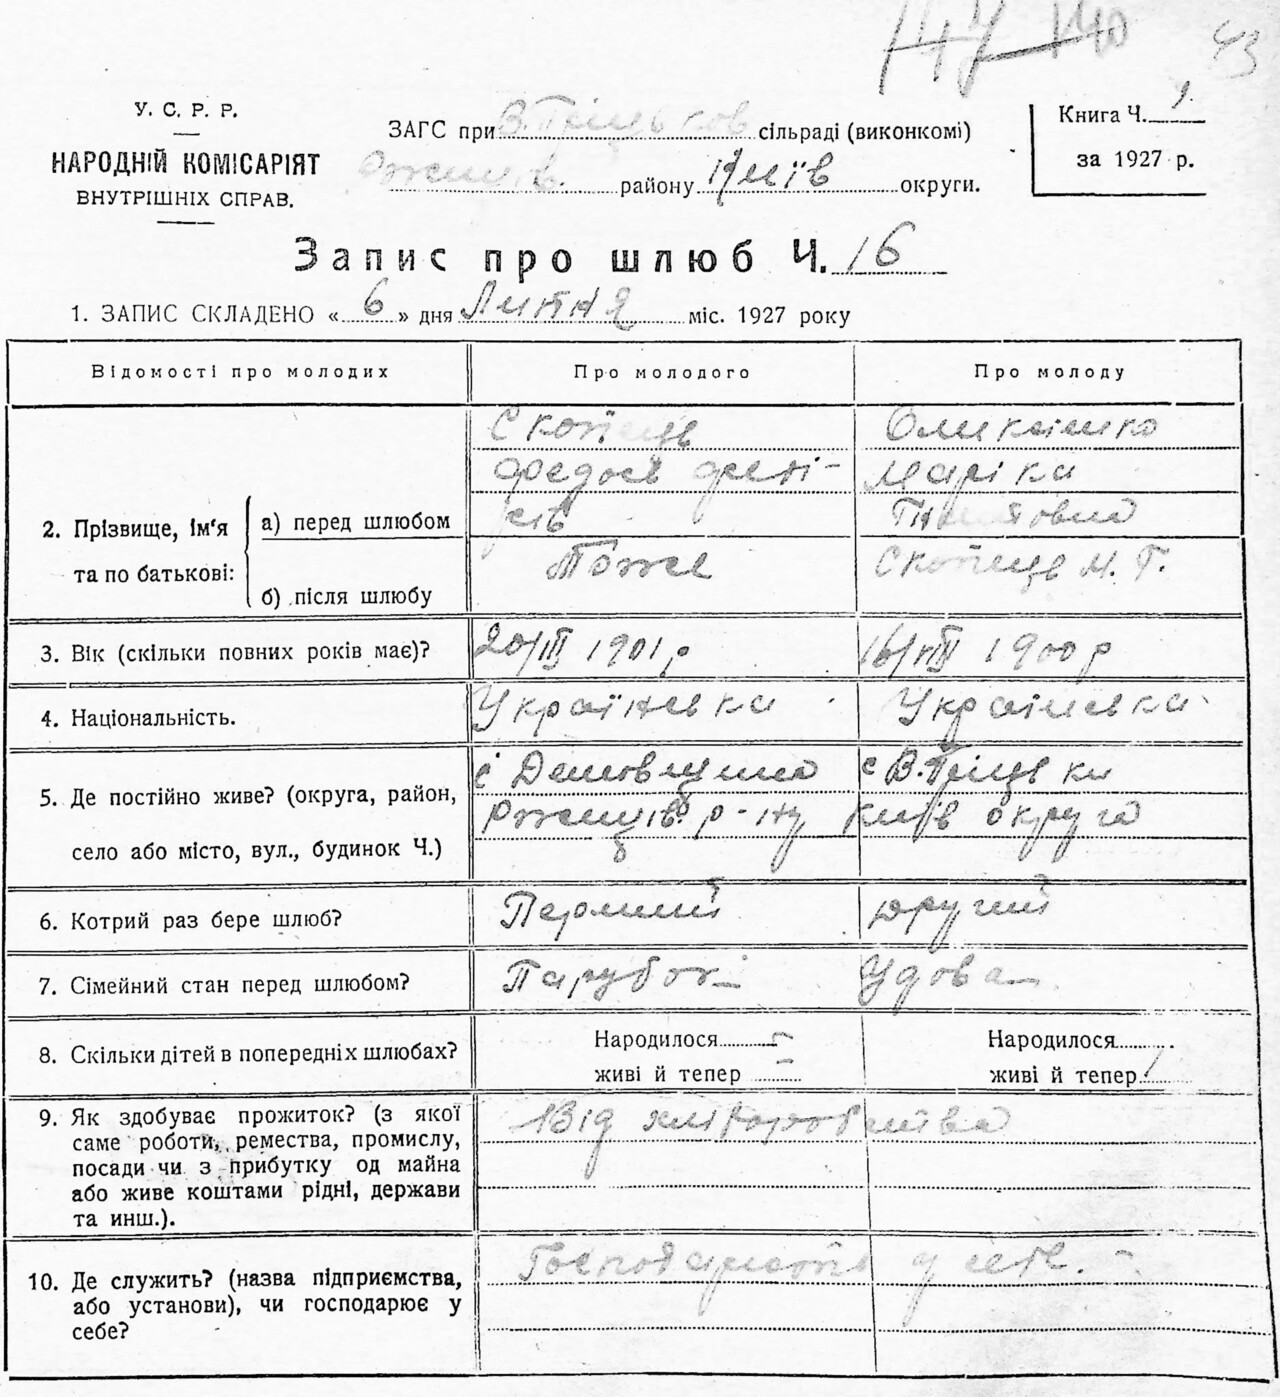 147 140 43
У. С. Р. Р.
НАРОДНІЙ КОМІСАРІЯТ
ВНУТРІШНІХ СПРАВ.
ЗАГС при В. Гріцьков сільраді (виконкомі)
району Київ округи.
Книга Ч. 1.
за 1927 р.
Запис про шлюб Ч. 16
1. ЗАПИС СКЛАДЕНО « 6 » дня Липня міс. 1927 року
Відомості про молодих Про молодого Про молоду
2. Прізвище, ім'я та по батькові:
а) перед шлюбом
Скопець
Федось
Маріка
б) після шлюбу
Тоже
Скопець М. Г.
3. Вік (скільки повних років має)? 20/III 1901 р 16/VIII 1900 р
4. Національність. Українська Українська
5. Де постійно живе? (округа, район, село або місто, вул., будинок Ч.)
с с В. Гріцьки
р-ну Київ округа
6. Котрий раз бере шлюб? Перший другий
7. Сімейний стан перед шлюбом? Парубок Удова
8. Скільки дітей в попередніх шлюбах? Народилося - Народилося
живі й тепер - живі й тепер 1
9. Як здобуває прожиток? (з якої
саме роботи, ремества, промислу,
посади чи з прибутку од майна
або живе коштами рідні, держави
та инш.).
Від хліборобства
10. Де служить? (назва підприємства,
або установи), чи господарює у
себе?
Господарств у себе.